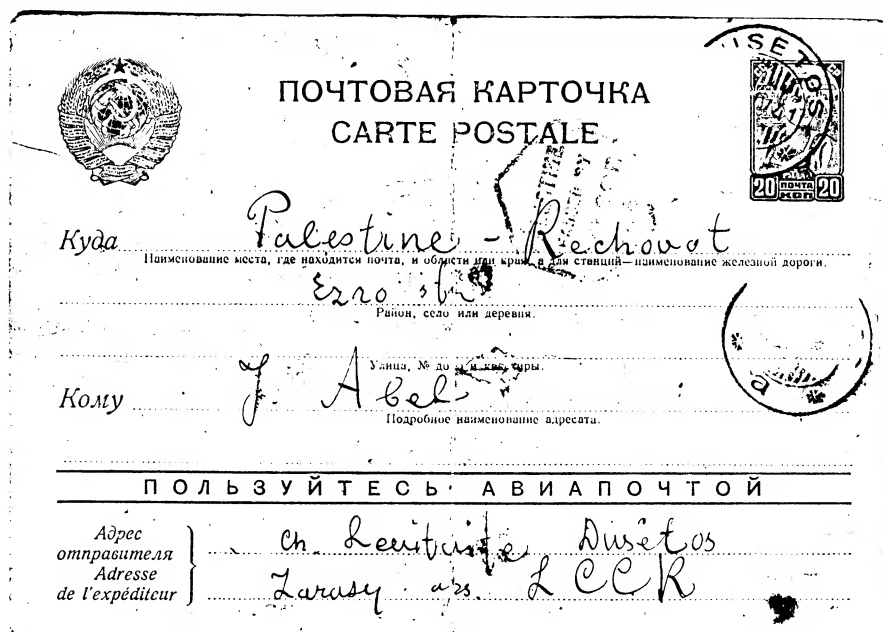 ПОЧТОВАЯ КАРТОЧКА
CARTE POSTALE
USETOS
20 ПОЧТА КОП 20
Куда Palestine - Rechovot
Наименование места, где находится почта, и области или края, а для станций—наименование железной дороги.
Ezro str
Район, село или деревня.
Улица, № дома и квартиры.
Кому J. Abel
Подробное наименование адресата.
ПОЛЬЗУЙТЕСЬ АВИАПОЧТОЙ
Адрес отправителя
Adresse de l'expéditeur
Ch. Levitaite Dusetos
Zarasų aps. LCCR